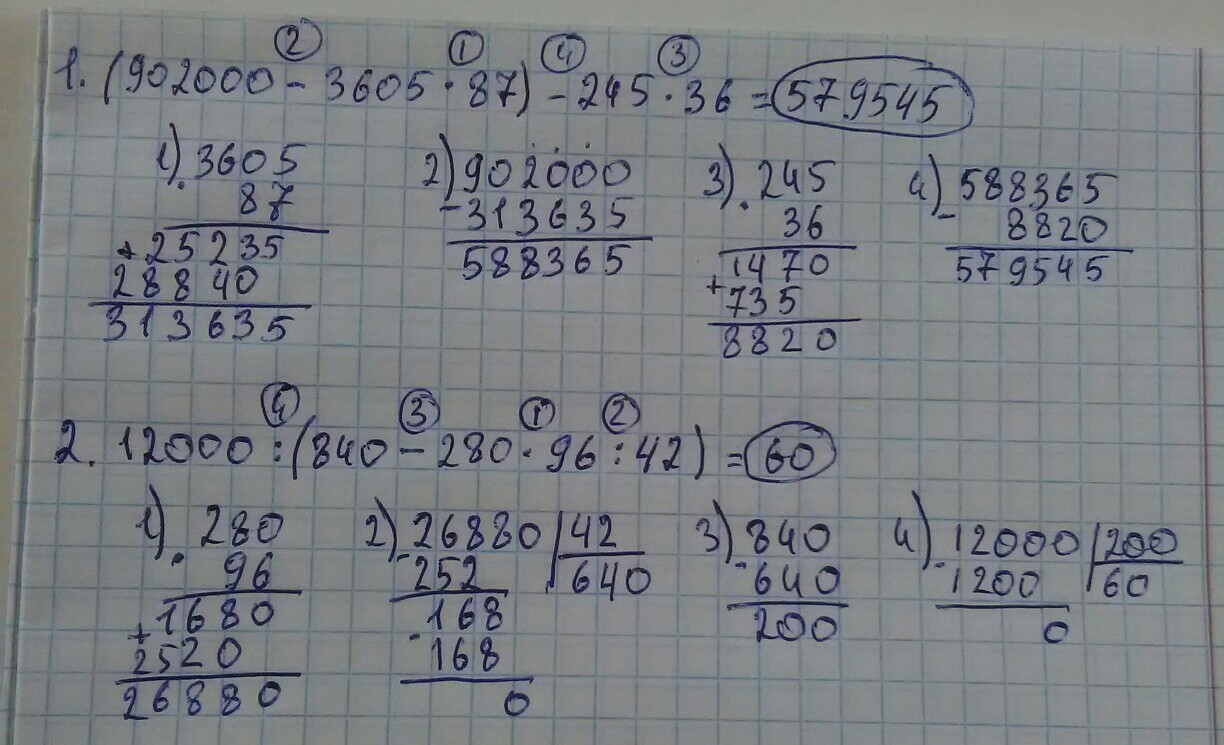 ② ① ④ ③
1. (902000 - 3605 · 87) - 245 · 36 = 579545
1) 3605
· 87
+ 25235
28840
313635
2) 902000
- 313635
588365
3) 245
· 36
1470
+ 735
8820
4) 588365
- 8820
579545
④ ③ ① ②
2. 12000 : (840 - 280 · 96 : 42) = 60
1) 280
· 96
+ 1680
2520
26880
2) 26880 | 42
- 252 640
168
- 168
0
3) 840
- 640
200
4) 12000 | 200
- 1200 60
0